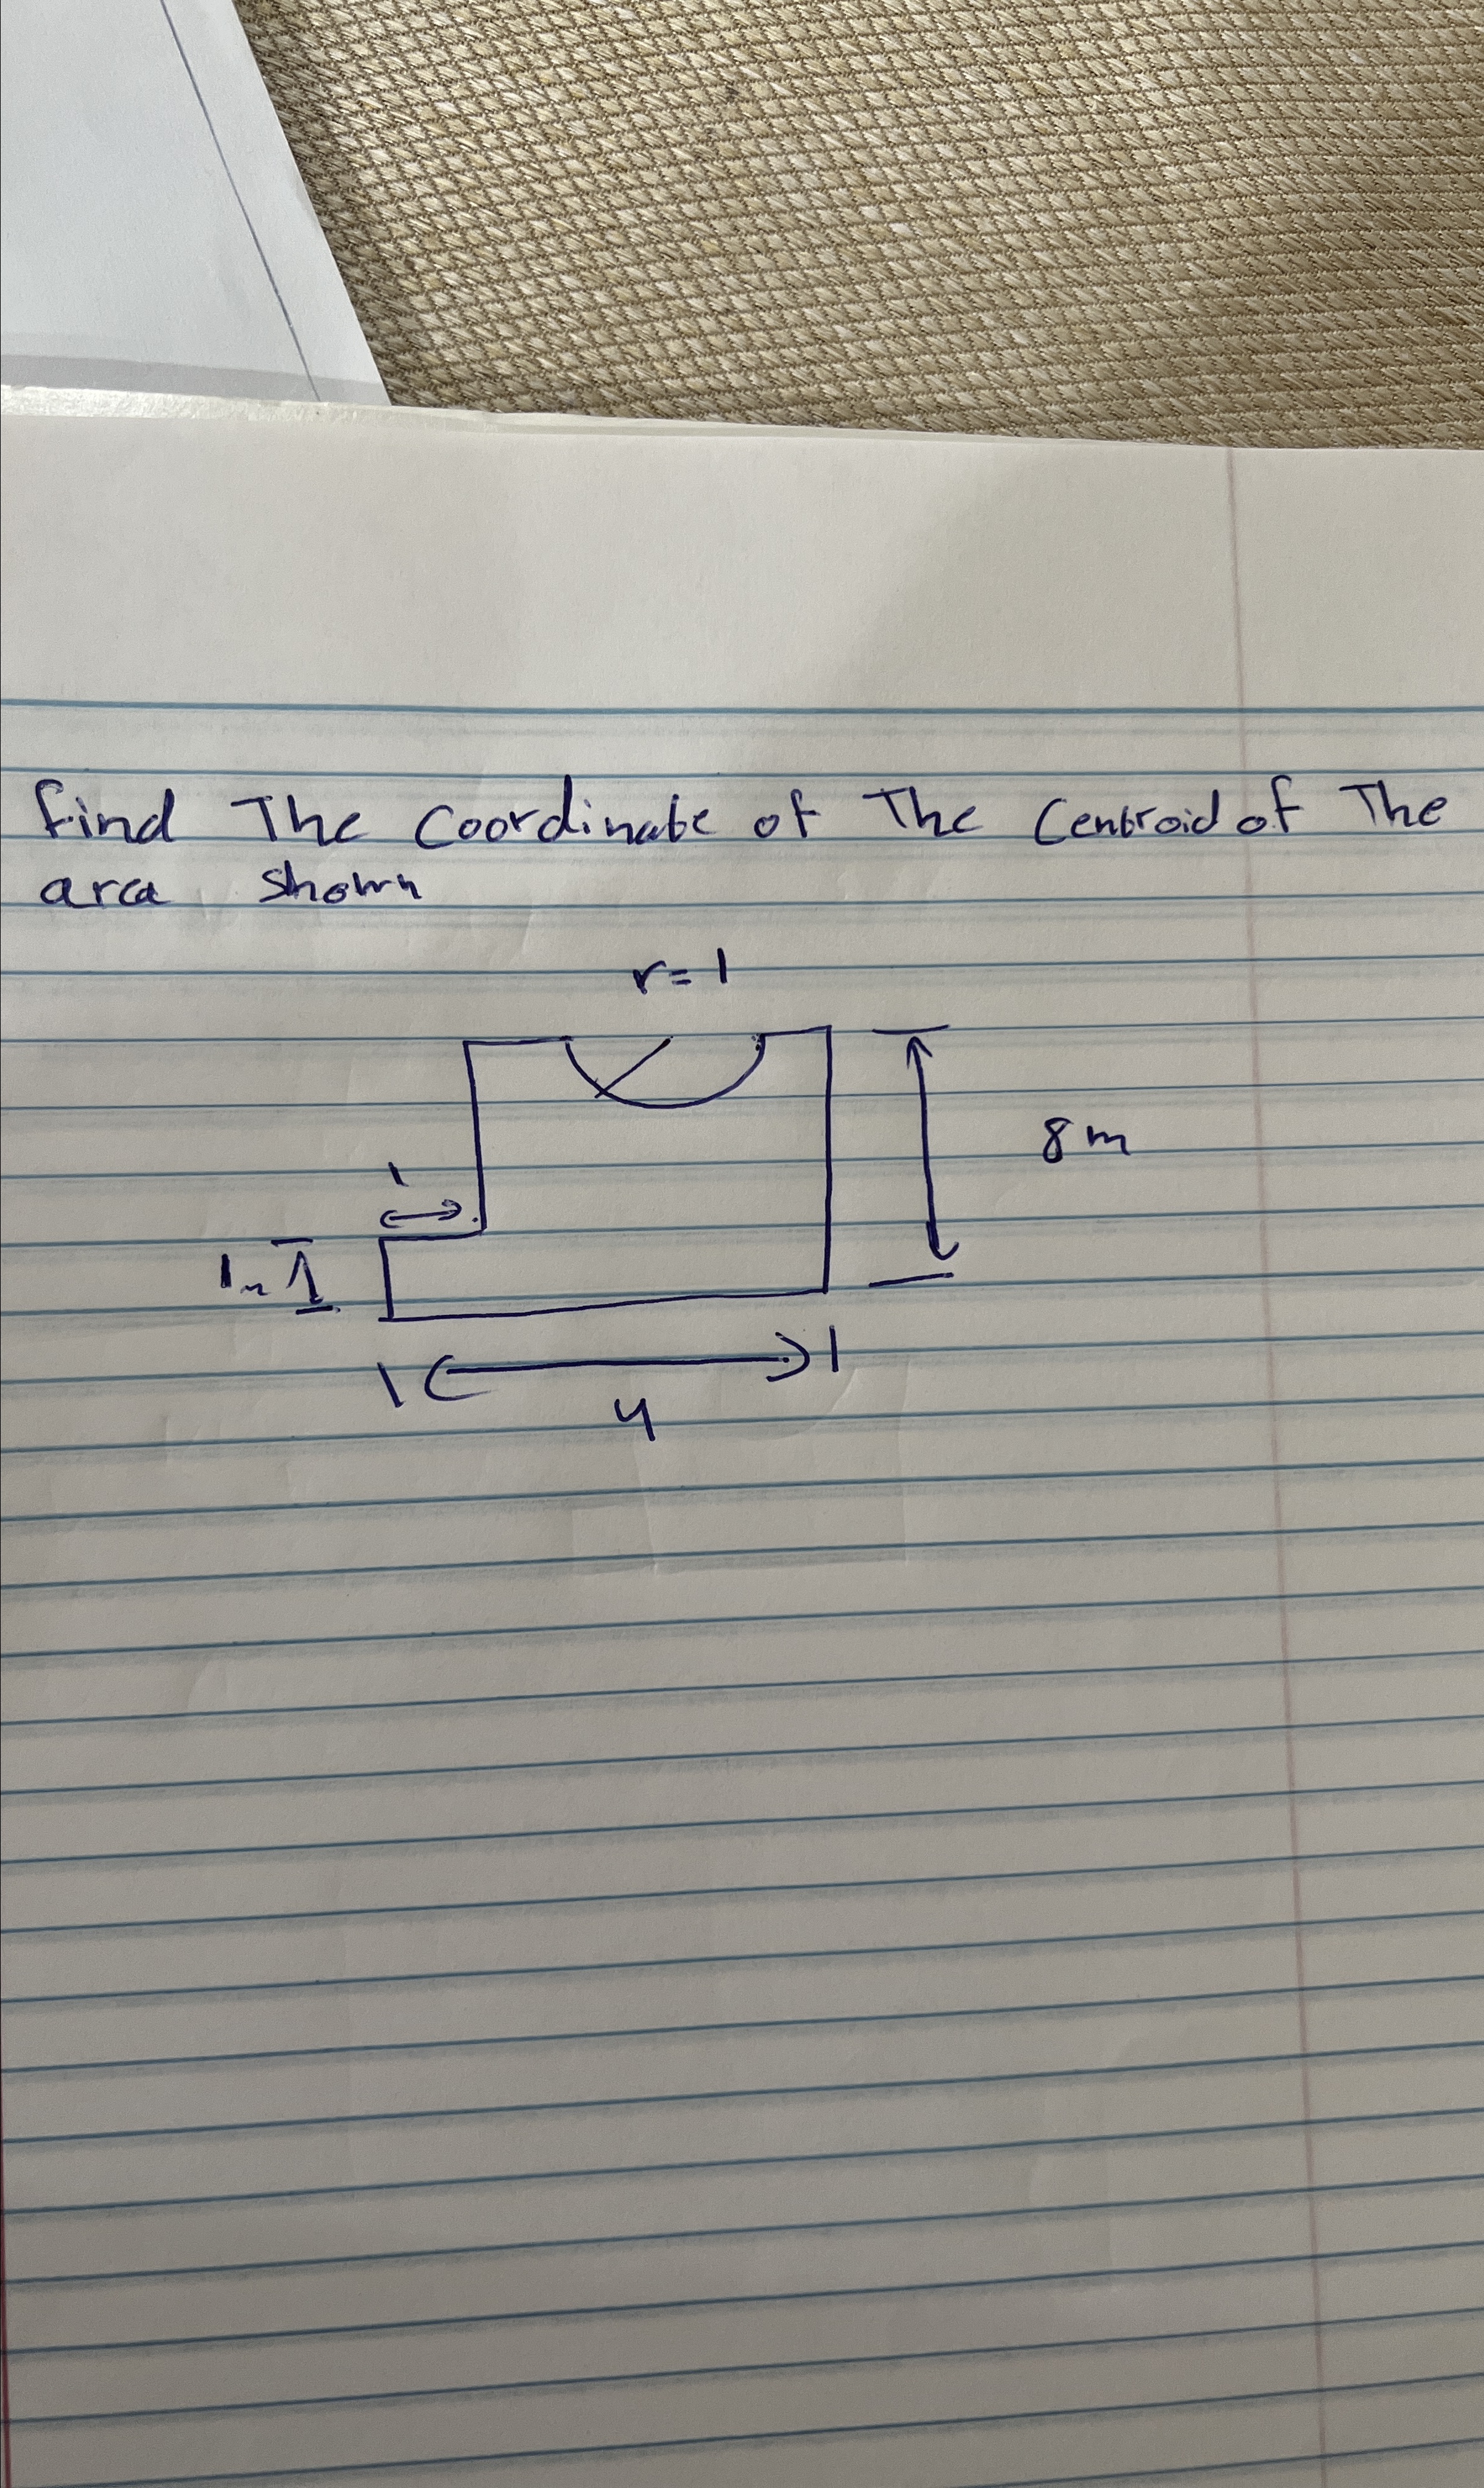 find The Coordinate of The Centroid of The
area shown
r=1
8m
1
1m
4